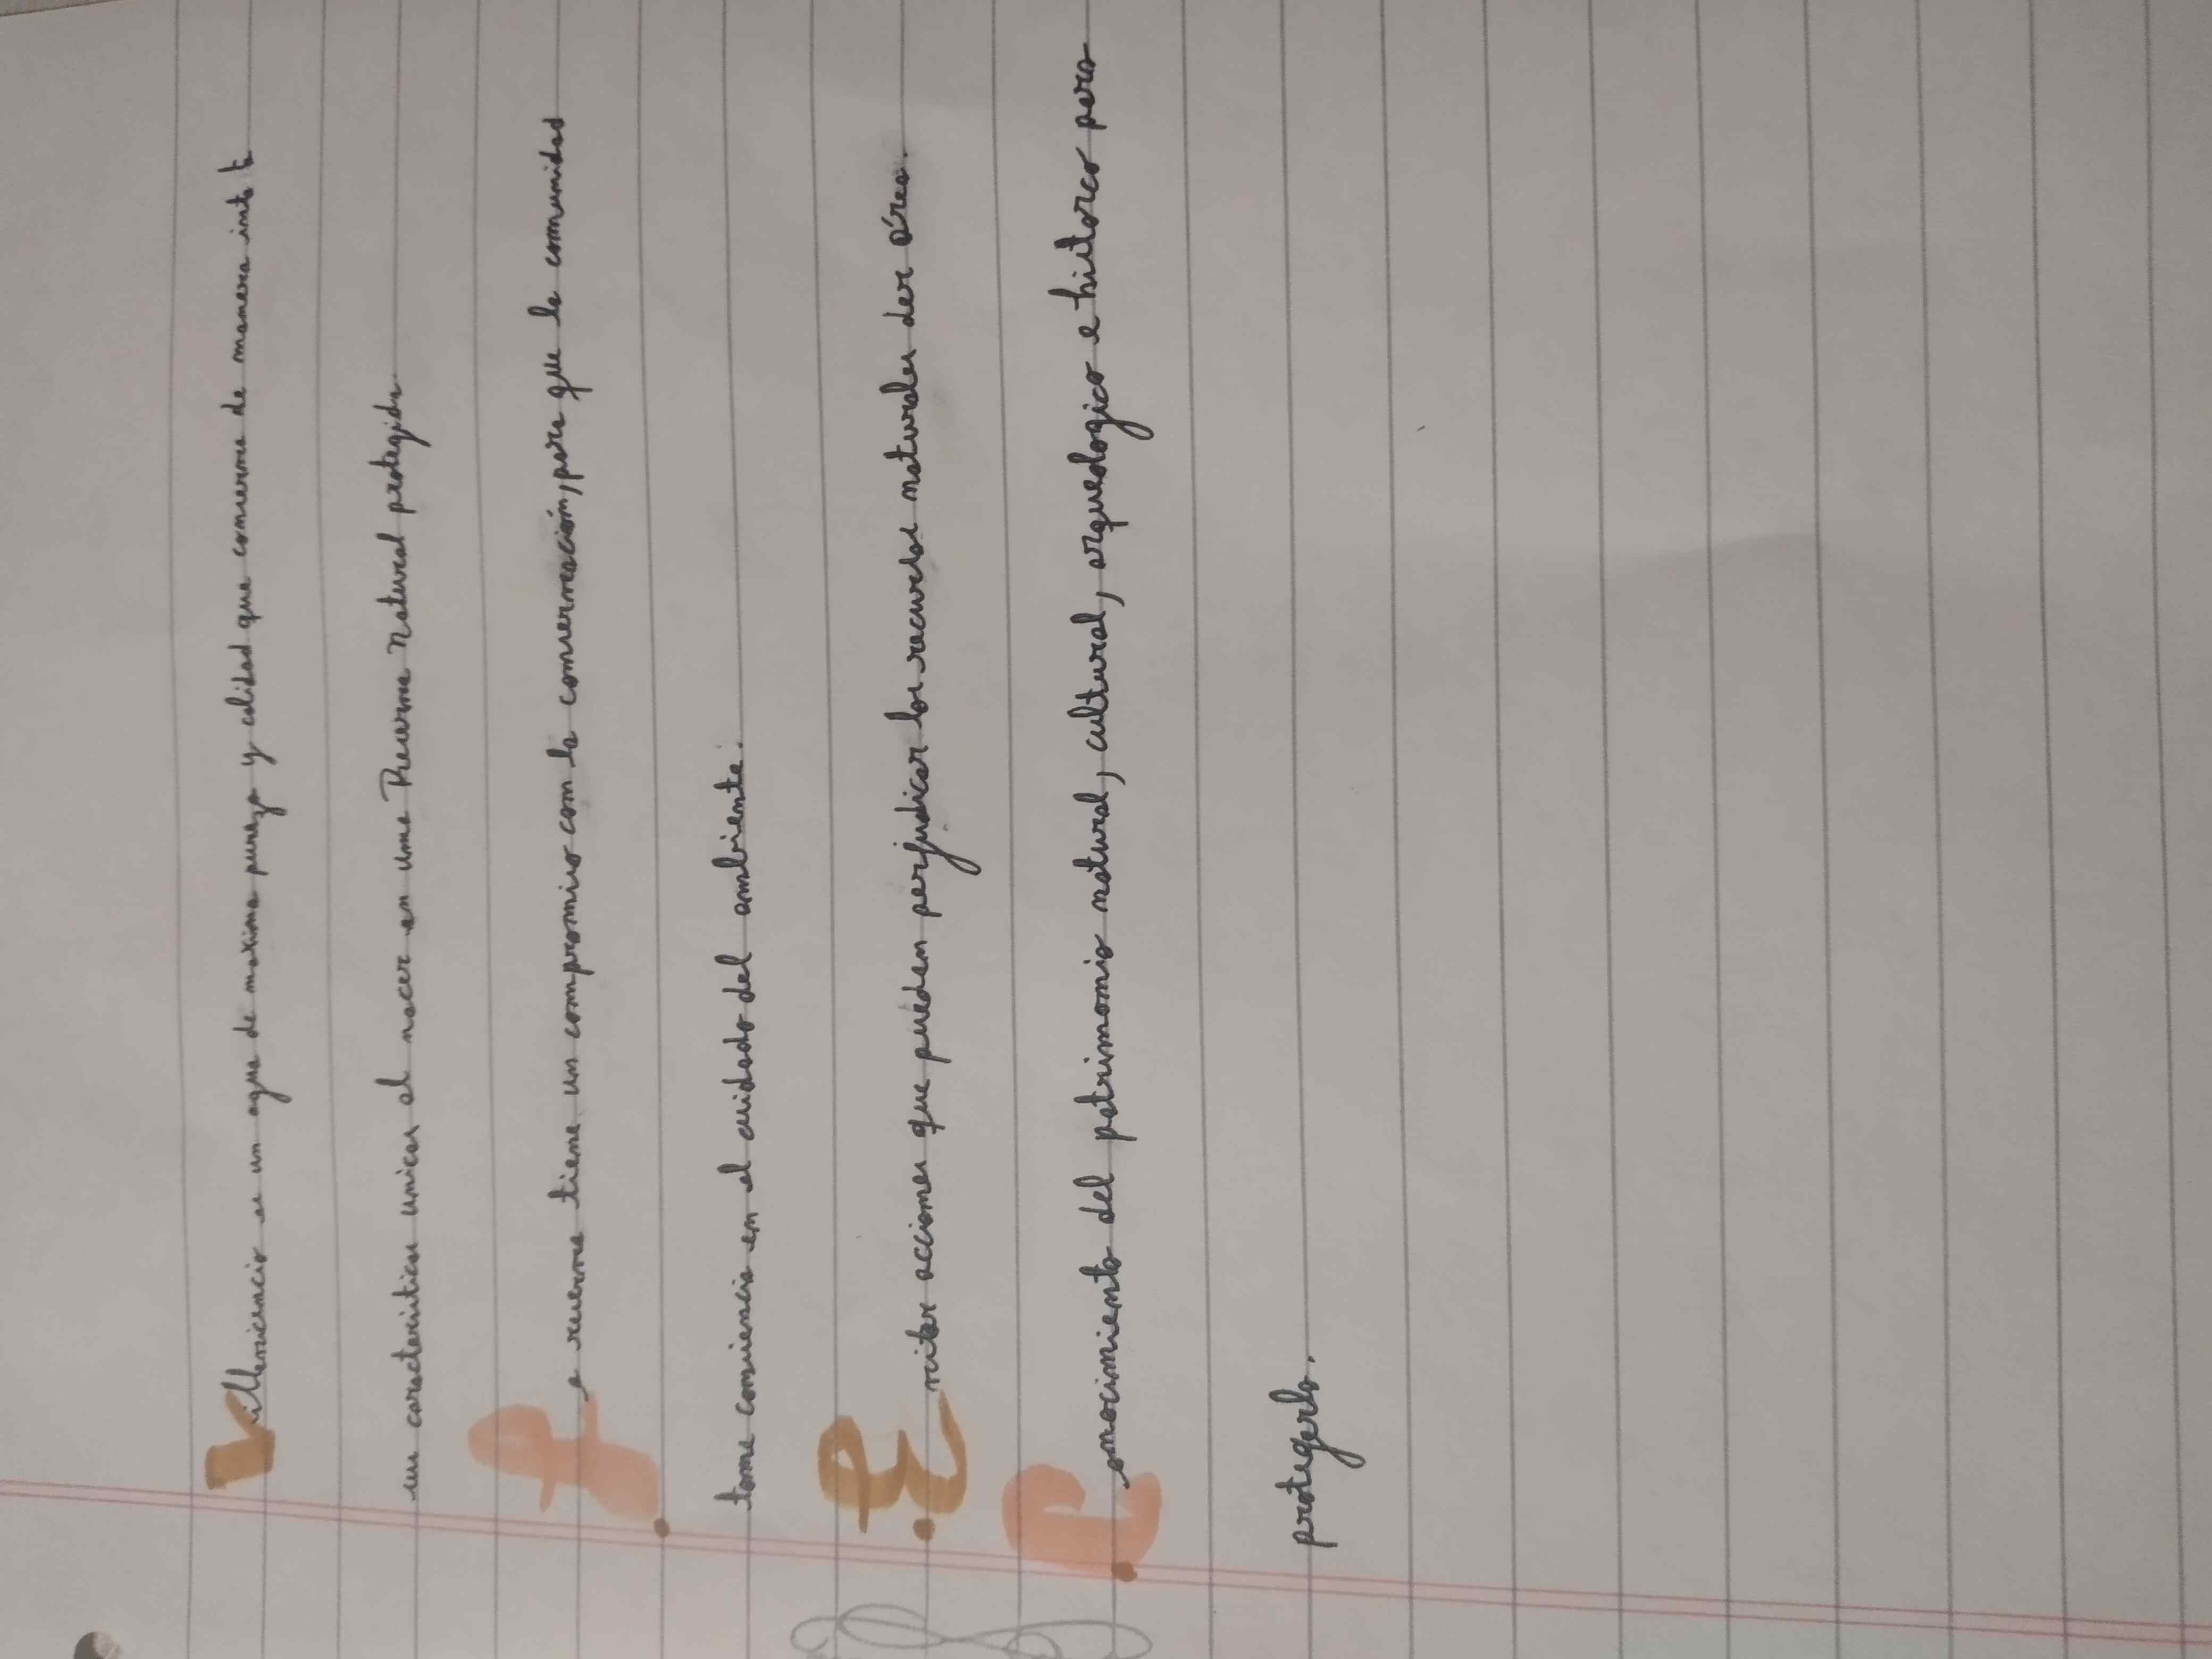 Villavicencio es un agua de maxima pureza y calidad que conserva de manera intata
sus caracteristicas unicas al nacer en una Reserva Natural protegida.
• La reserva tiene un compromiso con la conservación, para que la comunidad
tome consiencia en el cuidado del ambiente.
• Evitar acciones que puedan perjudicar los recursos naturales der área.
• Conocimiento del patrimonio natural, cultural, arqueologico e hitorco para
protegerlo.